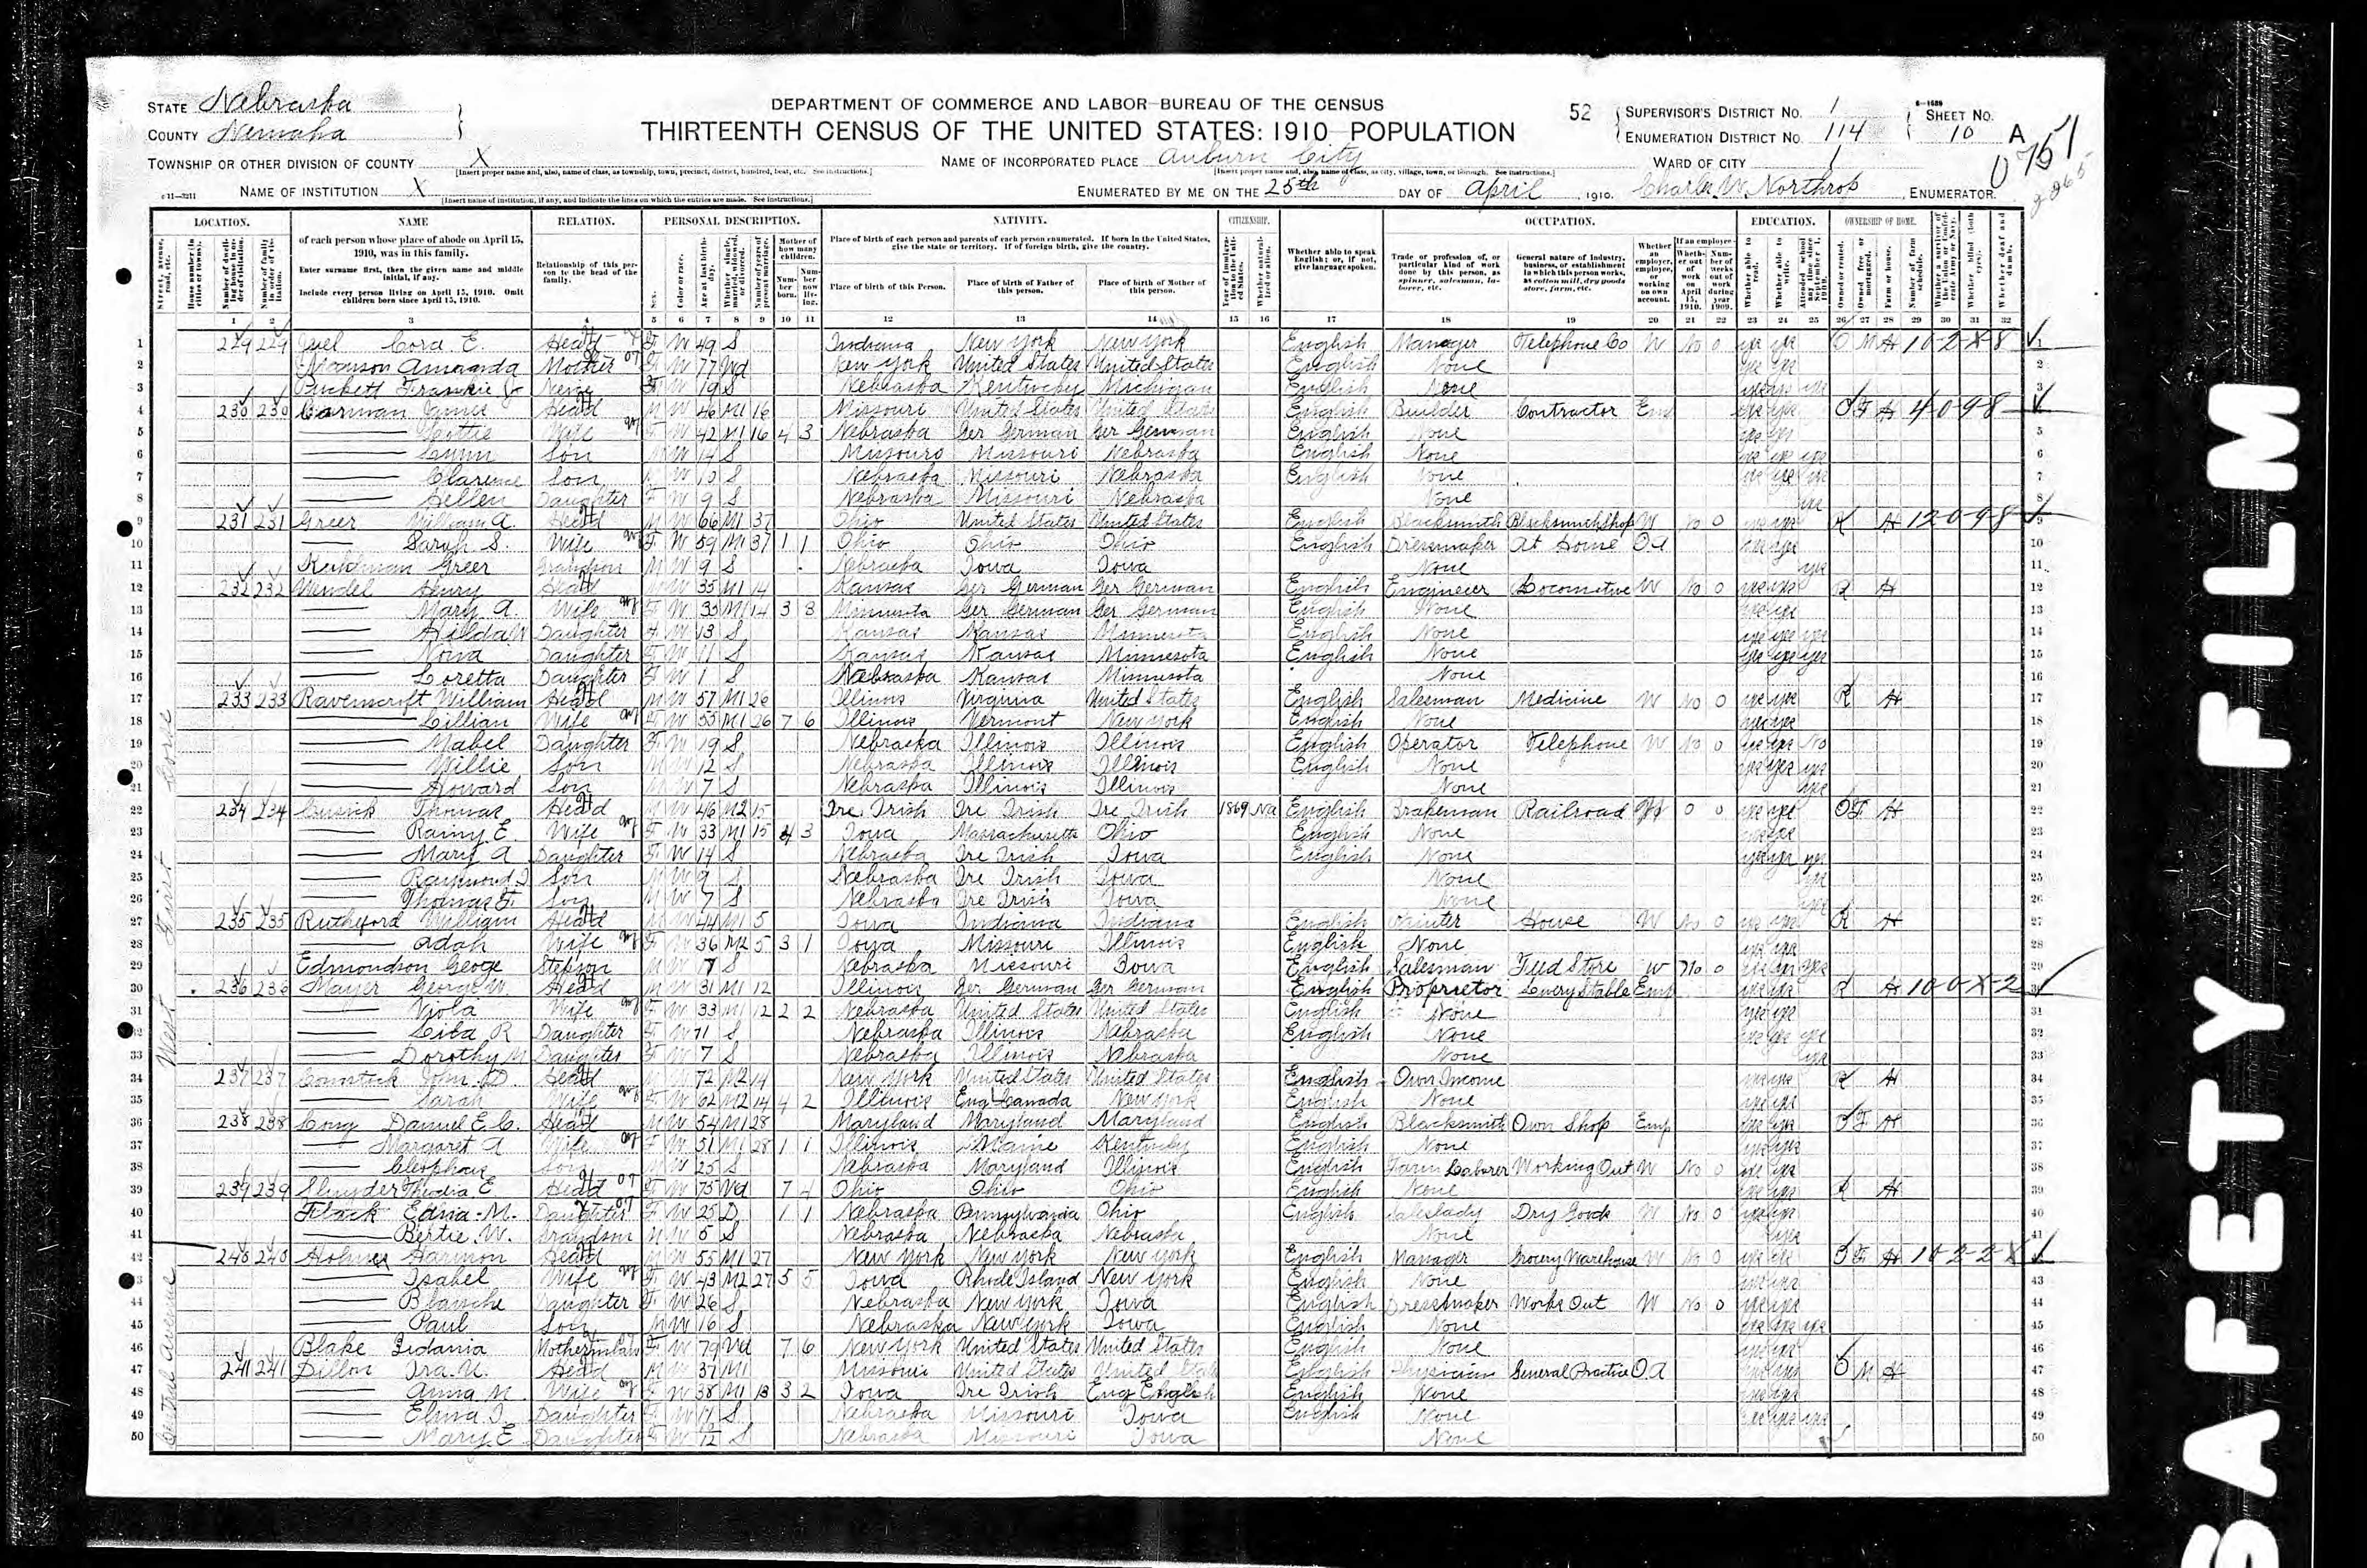 STATE Nebraska
COUNTY Nemaha
TOWNSHIP OR OTHER DIVISION OF COUNTY X
[Insert proper name and, also, name of class, as township, town, precinct, district, hundred, beat, etc. See instructions.]
NAME OF INSTITUTION X
[Insert name of institution, if any, and indicate the lines on which the entries are made. See instructions.]
DEPARTMENT OF COMMERCE AND LABOR—BUREAU OF THE CENSUS
THIRTEENTH CENSUS OF THE UNITED STATES: 1910—POPULATION
NAME OF INCORPORATED PLACE Auburn City
[Insert proper name and, also, name of class, as city, village, town, or borough. See instructions.]
ENUMERATED BY ME ON THE 25th DAY OF April, 1910. Charles W. Northrop, ENUMERATOR.
52
SUPERVISOR'S DISTRICT NO. 1
ENUMERATION DISTRICT NO. 114
WARD OF CITY 1
SHEET NO. 10 A
0751
LOCATION. NAME RELATION. PERSONAL DESCRIPTION. NATIVITY. CITIZENSHIP. OCCUPATION. EDUCATION. OWNERSHIP OF HOME.
of each person whose place of abode on April 15, 1910, was in this family.
Enter surname first, then the given name and middle initial, if any.
Include every person living on April 15, 1910. Omit children born since April 15, 1910.
Relationship of this person to the head of the family.
Place of birth of each person and parents of each person enumerated. If born in the United States, give the state or territory. If of foreign birth, give the country.
Place of birth of this Person. Place of birth of Father of this person. Place of birth of Mother of this person.
Whether able to speak English; or, if not, give language spoken.
1 2 3 4 5 6 7 8 9 10 11 12 13 14 15 16 17 18 19 20 21 22 23 24 25 26 27 28 29 30 31 32
1 229 229 Cora E. Head F W 49 S Indiana New York New York English Manager Telephone Co W No 0 yes yes O M H 10-2-X-8
2 Amanda Mother F W 77 Wd New York United States United States English None yes yes
3 Frankie F W 19 S Nebraska Kentucky Michigan English None
4 230 230 Carman Head M W 46 M1 16 Missouri United States United States English Builder Contractor Emp yes yes O F H 4-0-9-8
5 Wife F W 42 M1 16 4 3 Nebraska Ger German Ger German English None yes yes
6 Son M W 14 S Missouri Missouri Nebraska English None yes yes yes
7 Clarence Son M W 10 S Nebraska Missouri Nebraska English None
8 Hellen Daughter F W 9 S Nebraska Missouri Nebraska None yes
9 231 231 Greer William A. Head M W 66 M1 37 Ohio United States United States English Blacksmith Blacksmith Shop W No 0 yes yes R H 12-0-9-8
10 Sarah S. Wife F W 59 M1 37 1 1 Ohio Ohio Ohio English Dressmaker At Home OA yes yes
11 Greer Grandson M W 9 S Nebraska Iowa Iowa None yes
12 232 232 Wendel Henry Head M W 35 M1 14 Kansas Ger German Ger German English Engineer Locomotive W No 0 yes yes R H
13 Mary A. Wife F W 33 M1 14 3 Minnesota Ger German Ger German English None yes yes
14 Hilda W Daughter F W 13 S Kansas Kansas Minnesota English None yes yes yes
15 Daughter F W 11 S Kansas Kansas Minnesota English None yes yes yes
16 Loretta Daughter F W 1 S Nebraska Kansas Minnesota None
17 233 233 Ravenscroft William Head M W 57 M1 26 Illinois Virginia United States English Salesman Medicine W No 0 yes yes R H
18 Lillian Wife F W 55 M1 26 7 6 Illinois Vermont New York English None yes yes
19 Mabel Daughter F W 19 S Nebraska Illinois Illinois English Operator Telephone W No 0 yes yes No
20 Willie Son M W 12 S Nebraska Illinois Illinois English None yes yes yes
21 Howard Son M W 7 S Nebraska Illinois Illinois None yes
22 234 234 Cusick Thomas Head M W 46 M2 15 Ire Irish Ire Irish Ire Irish 1869 Na English Brakeman Railroad W 0 0 yes yes O F H
23 Wife F W 33 M1 15 4 3 Iowa Massachusetts Ohio English None yes yes
24 Mary A Daughter F W 14 S Nebraska Ire Irish Iowa English None yes yes yes
25 Raymond Son M W 9 S Nebraska Ire Irish Iowa None yes
26 Thomas F. Son M W 7 S Nebraska Ire Irish Iowa None yes
27 235 235 Rutherford William Head M W 44 M1 5 Iowa Indiana Indiana English Painter House W No 0 yes yes R H
28 Adah Wife F W 36 M2 5 3 1 Iowa Missouri Illinois English None yes yes
29 Edmondson George Stepson M W 17 S Nebraska Missouri Iowa English Salesman Feed Store W No 0 yes yes yes
30 236 236 Mayer George W. Head M W 31 M1 12 Illinois Ger German Ger German English Proprietor Livery Stable Emp yes yes R H 10-0-X-2
31 Viola Wife F W 33 M1 12 2 2 Nebraska United States United States English None yes yes
32 R Daughter F W 11 S Nebraska Illinois Nebraska English None yes yes yes
33 Dorothy M Daughter F W 7 S Nebraska Illinois Nebraska None yes
34 237 237 Comstock Wm. D. Head M W 72 M2 14 New York United States United States English Own Income yes yes R H
35 Sarah Wife F W 62 M2 14 4 2 Illinois Eng Canada New York English None yes yes
36 238 238 Daniel E. C. Head M W 54 M1 28 Maryland Maryland Maryland English Blacksmith Own Shop Emp yes yes O F H
37 Margaret A Wife F W 51 M1 28 1 1 Illinois Maine Kentucky English None yes yes
38 Cleophas Son M W 25 S Nebraska Maryland Illinois English Farm Laborer Working Out W No 0 yes yes
39 239 239 Head F W 75 Wd 7 4 Ohio Ohio Ohio English None R H
40 Flack Edna M. Daughter F W 25 D 1 1 Nebraska Pennsylvania Ohio English Saleslady Dry Goods W No 0 yes yes
41 Bertie W. Grandson M W 6 S Nebraska Nebraska Nebraska None yes
42 240 240 Holmes Harmon Head M W 55 M1 27 New York New York New York English Manager Grocery Warehouse W No 0 yes yes O F H 10-2-2-X
43 Isabel Wife F W 43 M2 27 5 5 Iowa Rhode Island New York English None yes yes
44 Blanche Daughter F W 26 S Nebraska New York Iowa English Dressmaker Works Out W No 0 yes yes
45 Paul Son M W 16 S Nebraska New York Iowa English None yes yes yes
46 Blake Motherinlaw F W 79 Wd 7 6 New York United States United States English None yes yes
47 241 241 Dillon Ira U. Head M W 37 M1 Missouri United States United States English Physician General Practice OA yes yes O M H
48 Anna M. Wife F W 38 M1 13 3 2 Iowa Ire Irish Eng English English None yes yes
49 Daughter F W 11 S Nebraska Missouri Iowa English None yes yes yes
50 Mary E Daughter F W S Nebraska Missouri Iowa None
West First
Central Avenue
SAFETY FILM